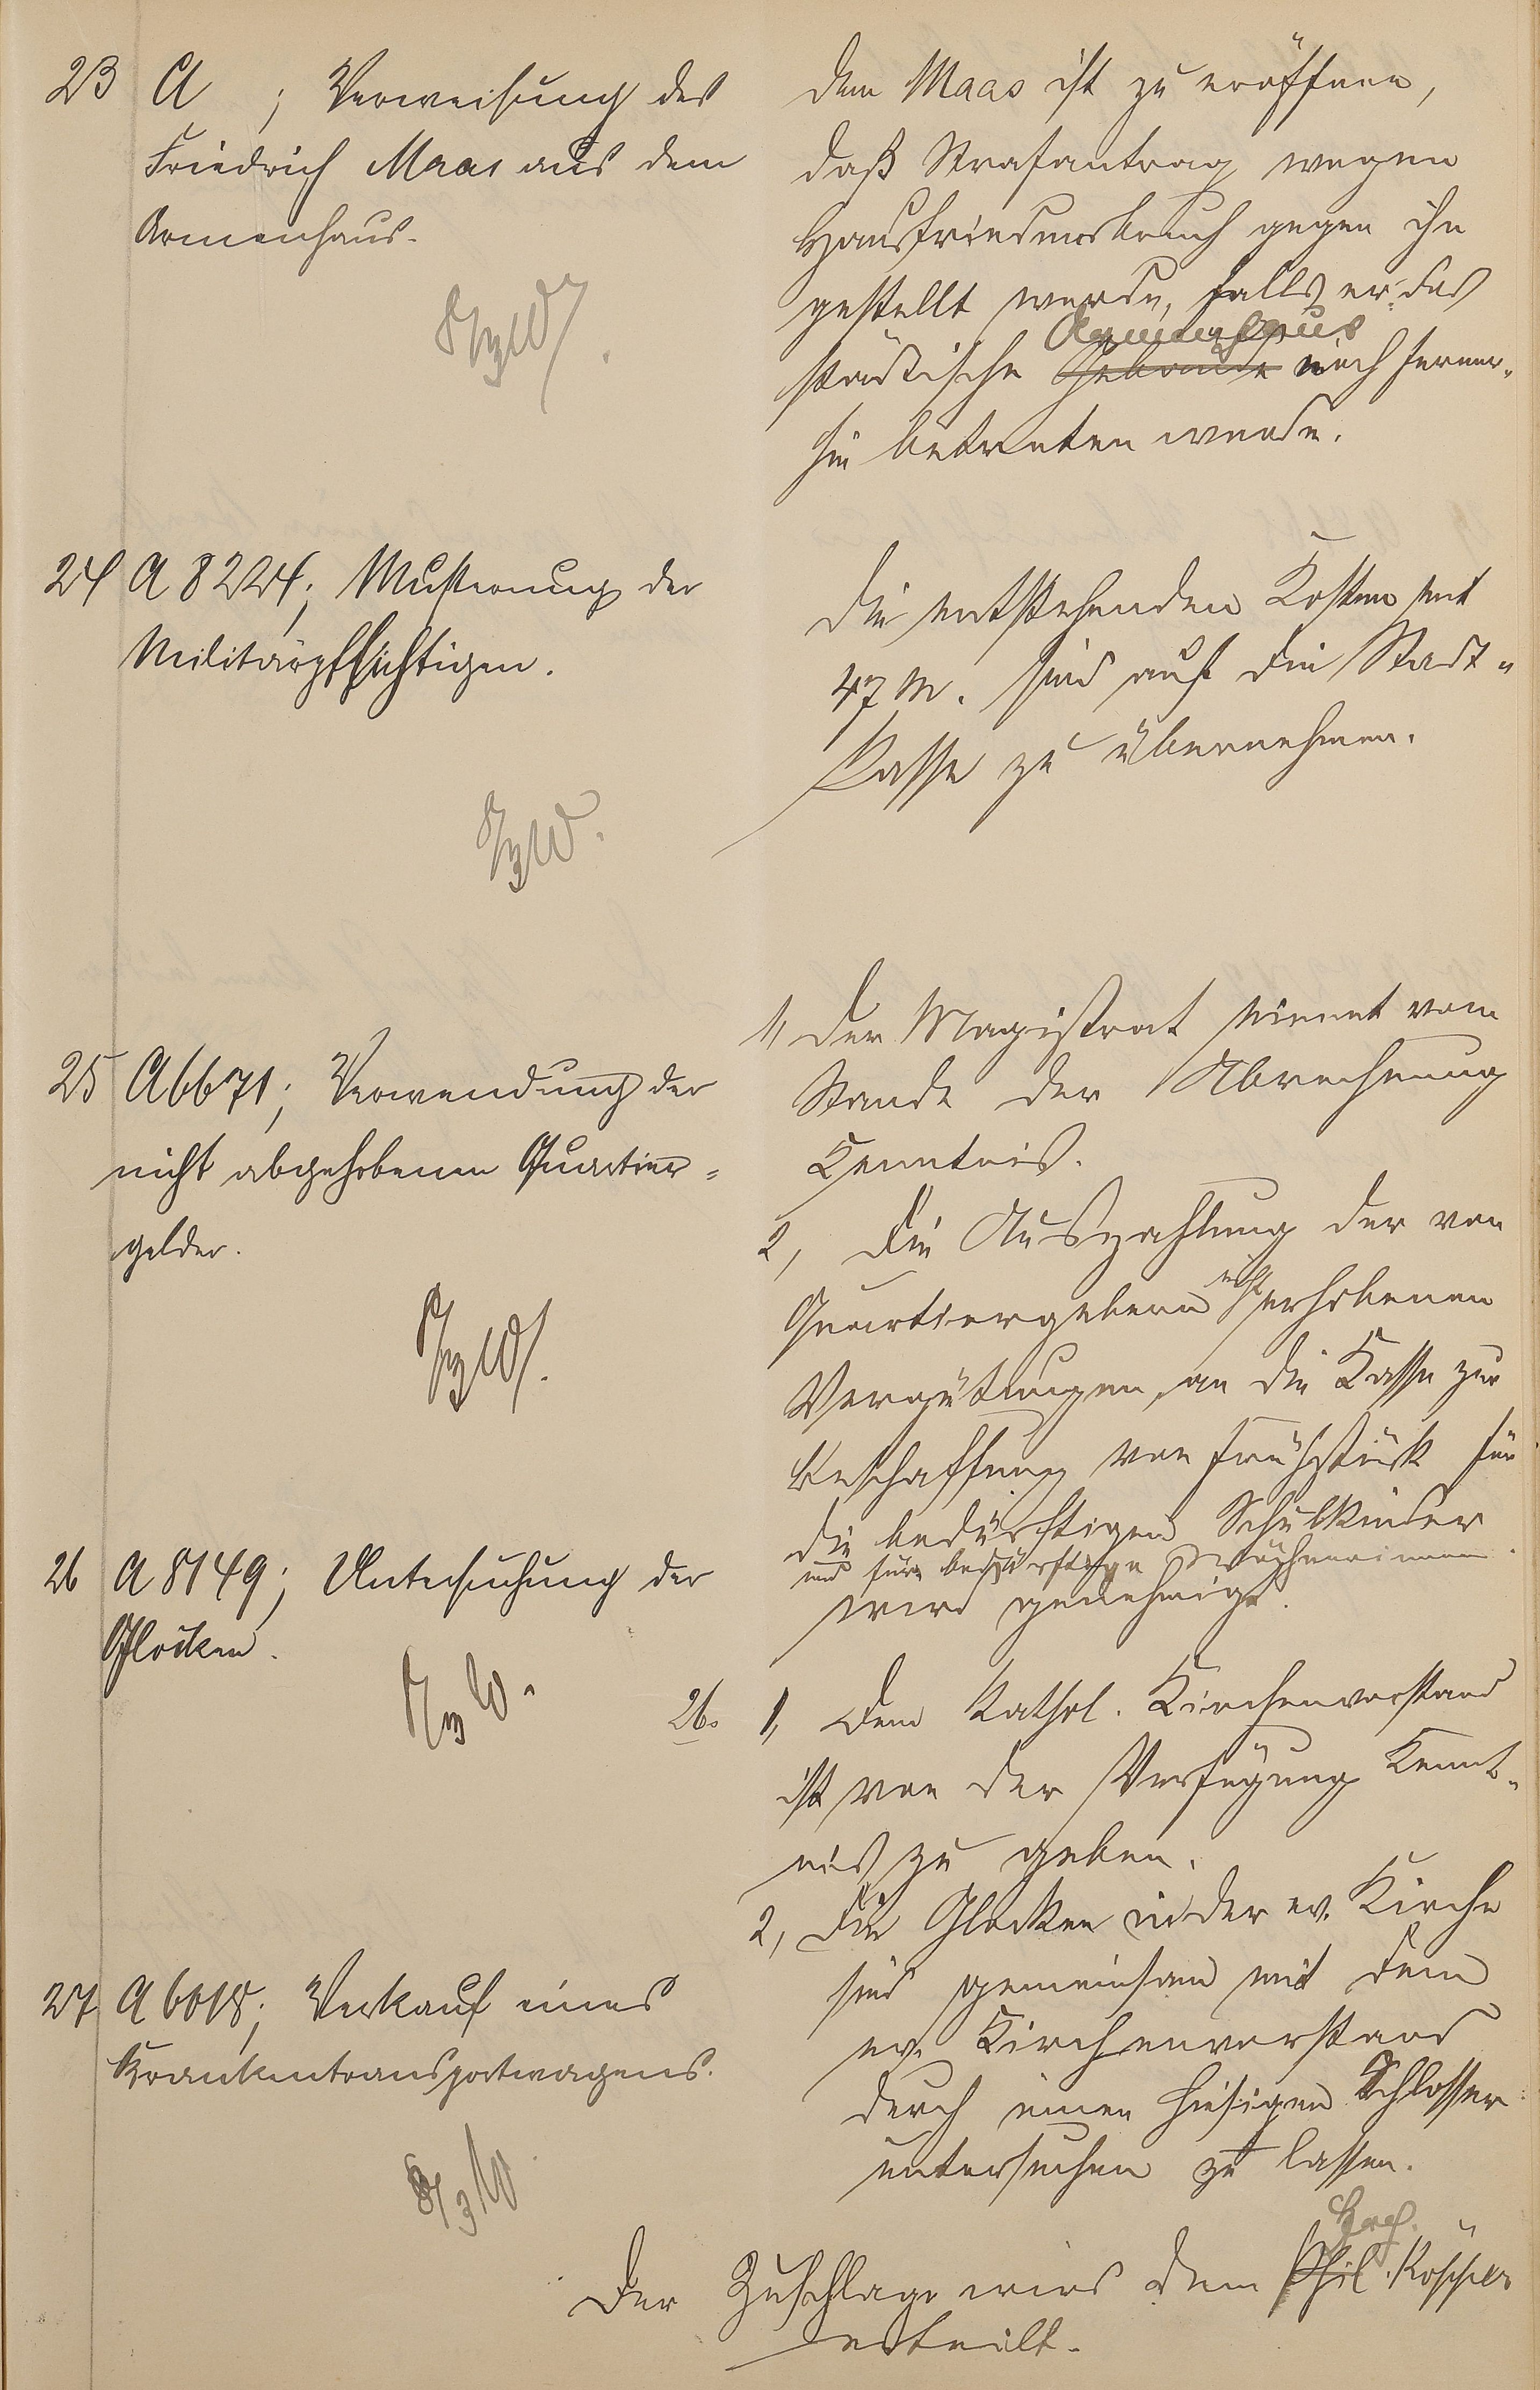 23 A ; Verweisung des
Friedrich Maas aus dem
Armenhaus.
8/3 W.
Dem Maas ist zu eröffnen,
daß Strafantrag wegen
Hausfriedensbruch gegen ihn
gestellt werde, falls er das
Armenhaus
städtische Gebäude noch ferner-
hin betreten werde.
24 A 8224; Musterung der
Militärpflichtigen.
8/3 W.
Die entstehenden Kosten mit
47 M. sind auf die Stadt-
kasse zu übernehmen.
25 A 6671; Verwendung der
nicht abgehobenen Quartier-
gelder.
8/3 W.
1, Der Magistrat nimmt vom
Stande der Abrechnung
Kenntnis.
2, Die Auszahlung der von
nicht
Quartiergebern erhobenen
Vergütungen, an die Kasse zur
Beschaffung von Frühstück für
die bedürftigen Schulkinder
und für bedürftige Wöchnerinnen
wird genehmigt.
26 A 8149; Untersuchung der
Glocken.
8/3 W.
26. 1, Dem kathol. Kirchenvorstand
ist von der Verfügung Kennt-
nis zu geben.
2, Die Glocken in der ev. Kirche
sind gemeinsam mit dem
ev. Kirchenvorstand
durch einen hiesigen Schlosser
untersuchen zu lassen.
27 A 6018; Verkauf eines
Krankentransportwagens.
8/3 W.
Der Zuschlag wird dem Phil.
erteilt.